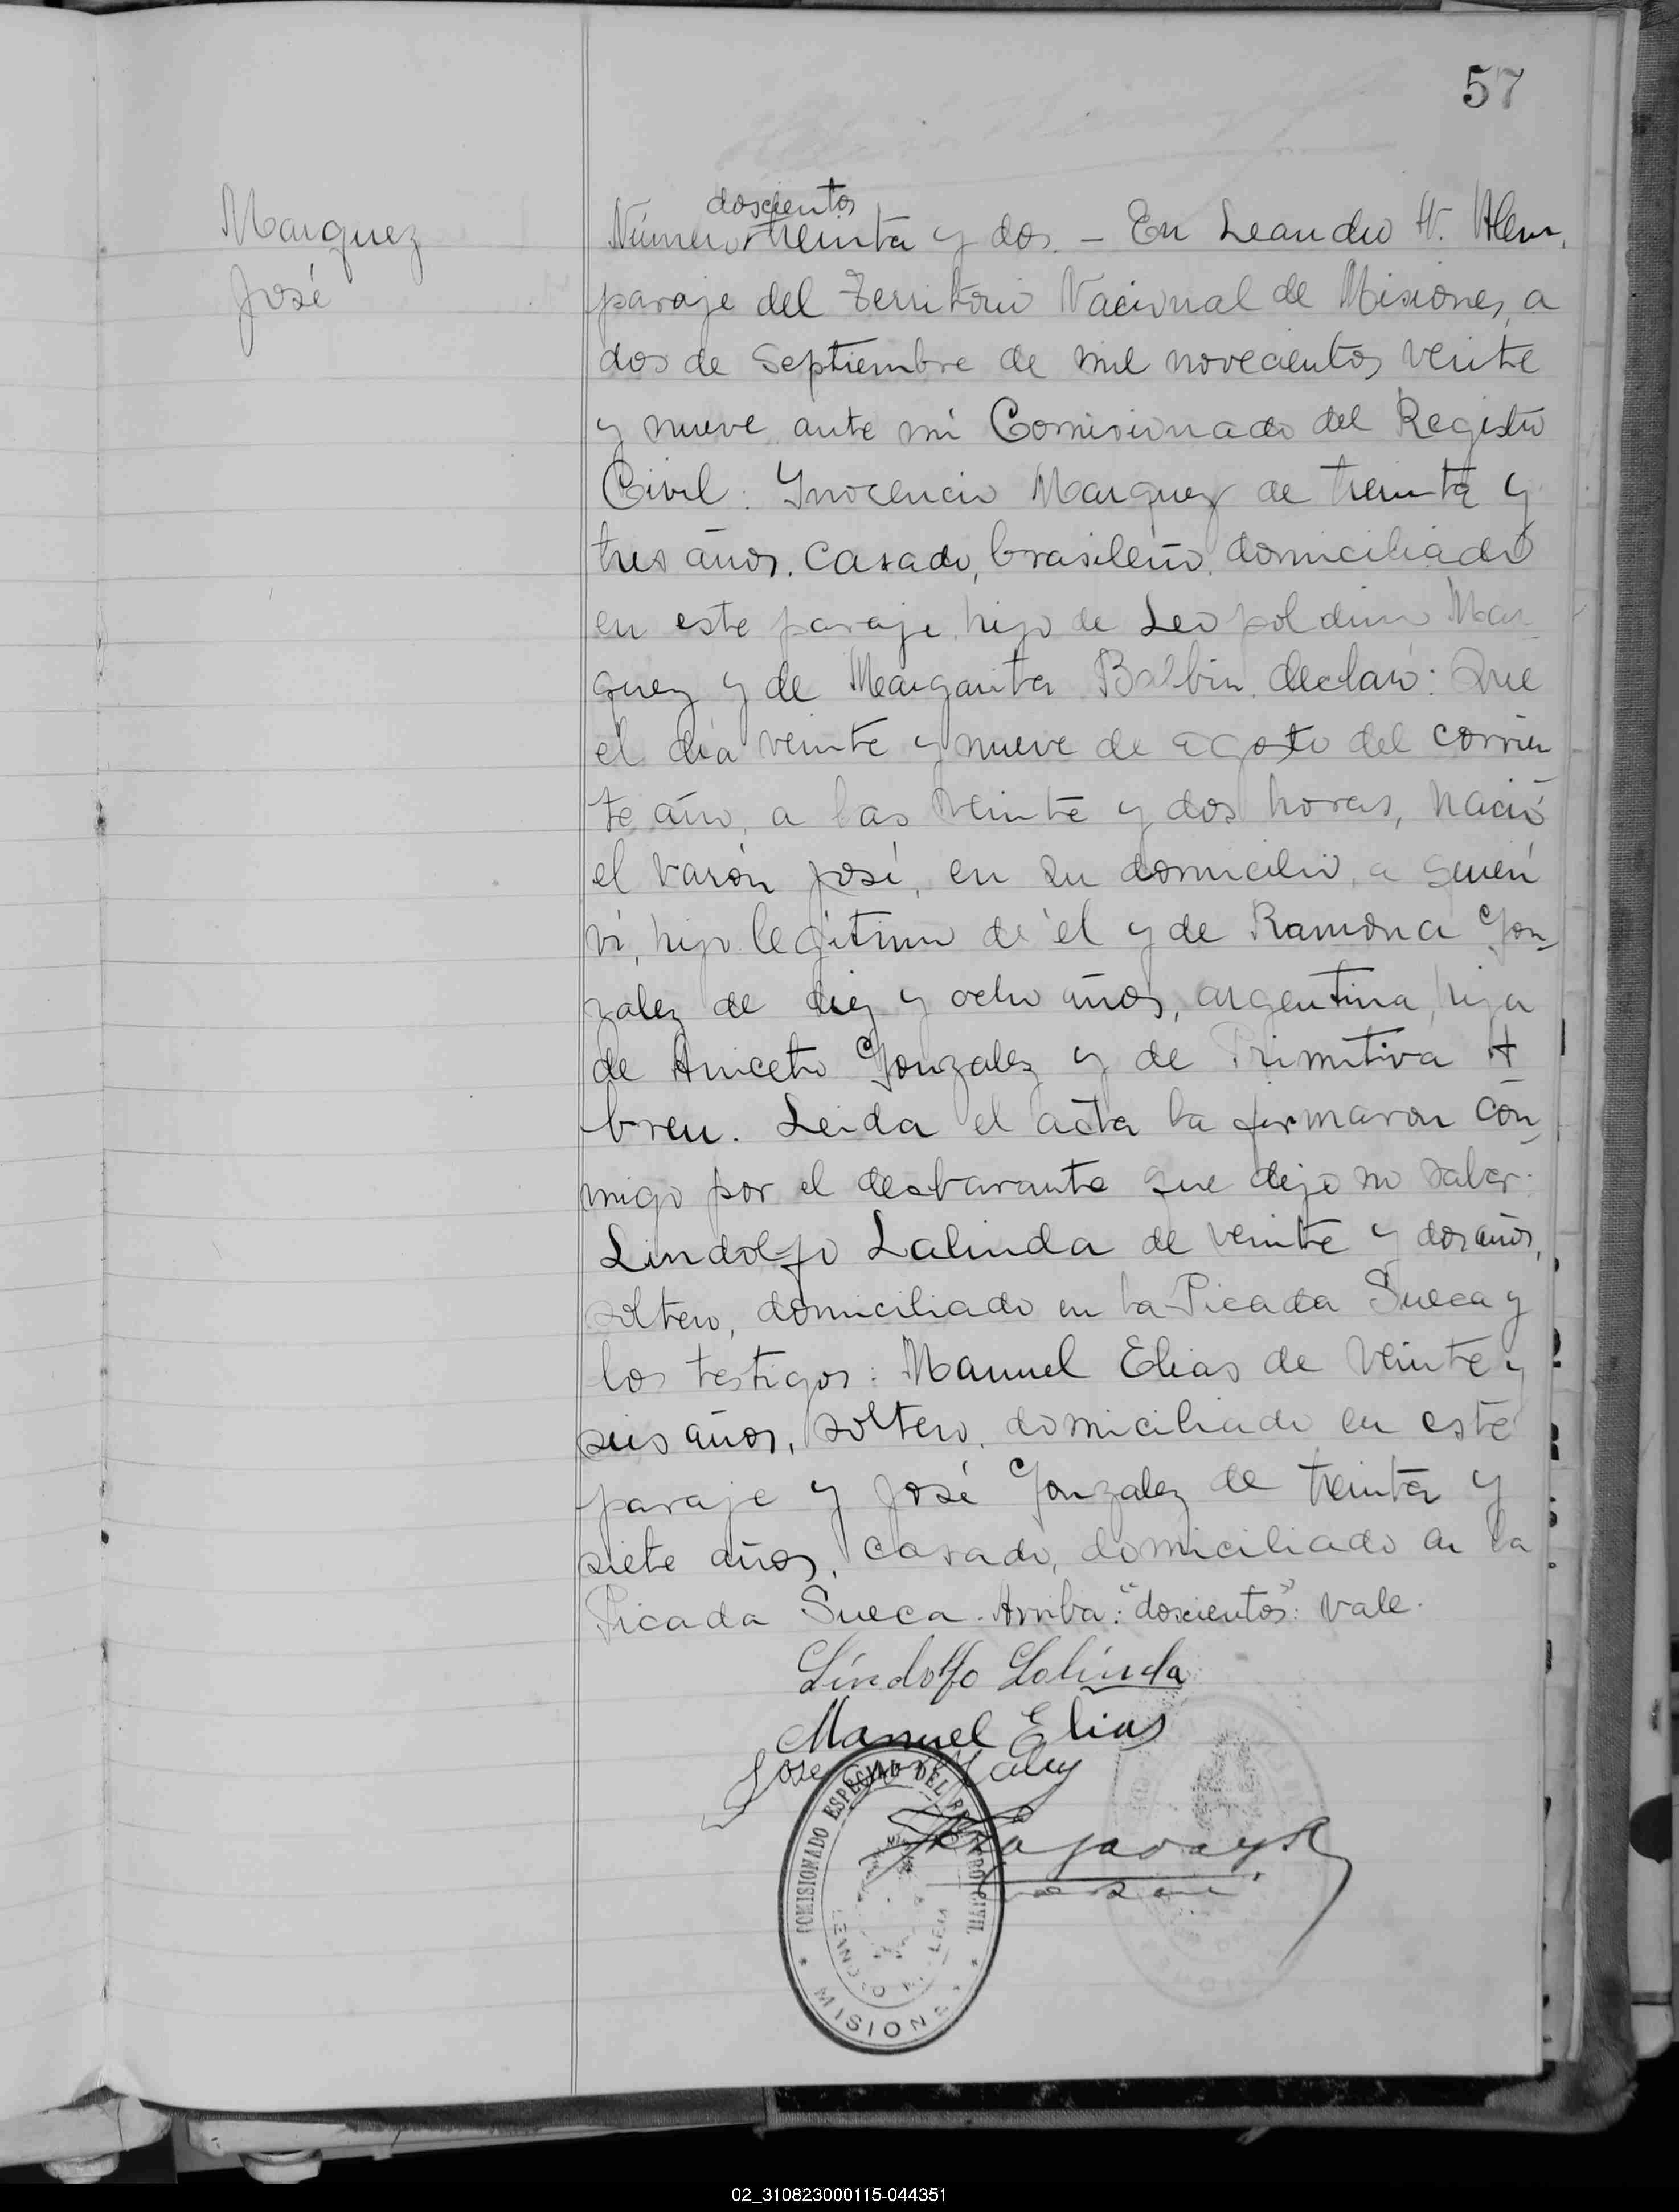 57
Marquez
José
doscientos
Número treinta y dos. - En Leandro N. Alem,
paraje del Territorio Nacional de Misiones, a
dos de Septiembre de mil novecientos veinte
y nueve, ante mi Comisionado del Registro
Civil: Ynocencio Marquez de treinta y
tres años, casado, brasileño, domiciliado
en este paraje, hijo de Leopoldino Mar
quez y de Margarita Balbin, declaró: Que
el día veinte y nueve de agosto del corrien
te año, a las veinte y dos horas, nació
el varón José, en su domicilio, a quién
ví, hijo legítimo de él y de Ramona Gon-
zalez de diez y ocho años, argentina, hija
de Aniceto Gonzalez y de Primitiva A
breu. Leida el acta la firmaron con-
migo por el declarante que dijo no saber:
Lindolfo Lalinda de veinte y dos años,
soltero, domiciliado en la Picada Sueca y
los testigos: Manuel Elias de veinte y
seis años, soltero, domiciliado en este
paraje y José Gonzalez de treinta y
siete años, casado, domiciliado en la
Picada Sueca. Arriba: "doscientos": Vale.
Lindolfo Lalinda
Manuel Elias
Jose
COMISIONADO ESPECIAL DEL REGISTRO CIVIL
LEANDRO N. ALEM
* MISIONES *
02_310823000115-044351